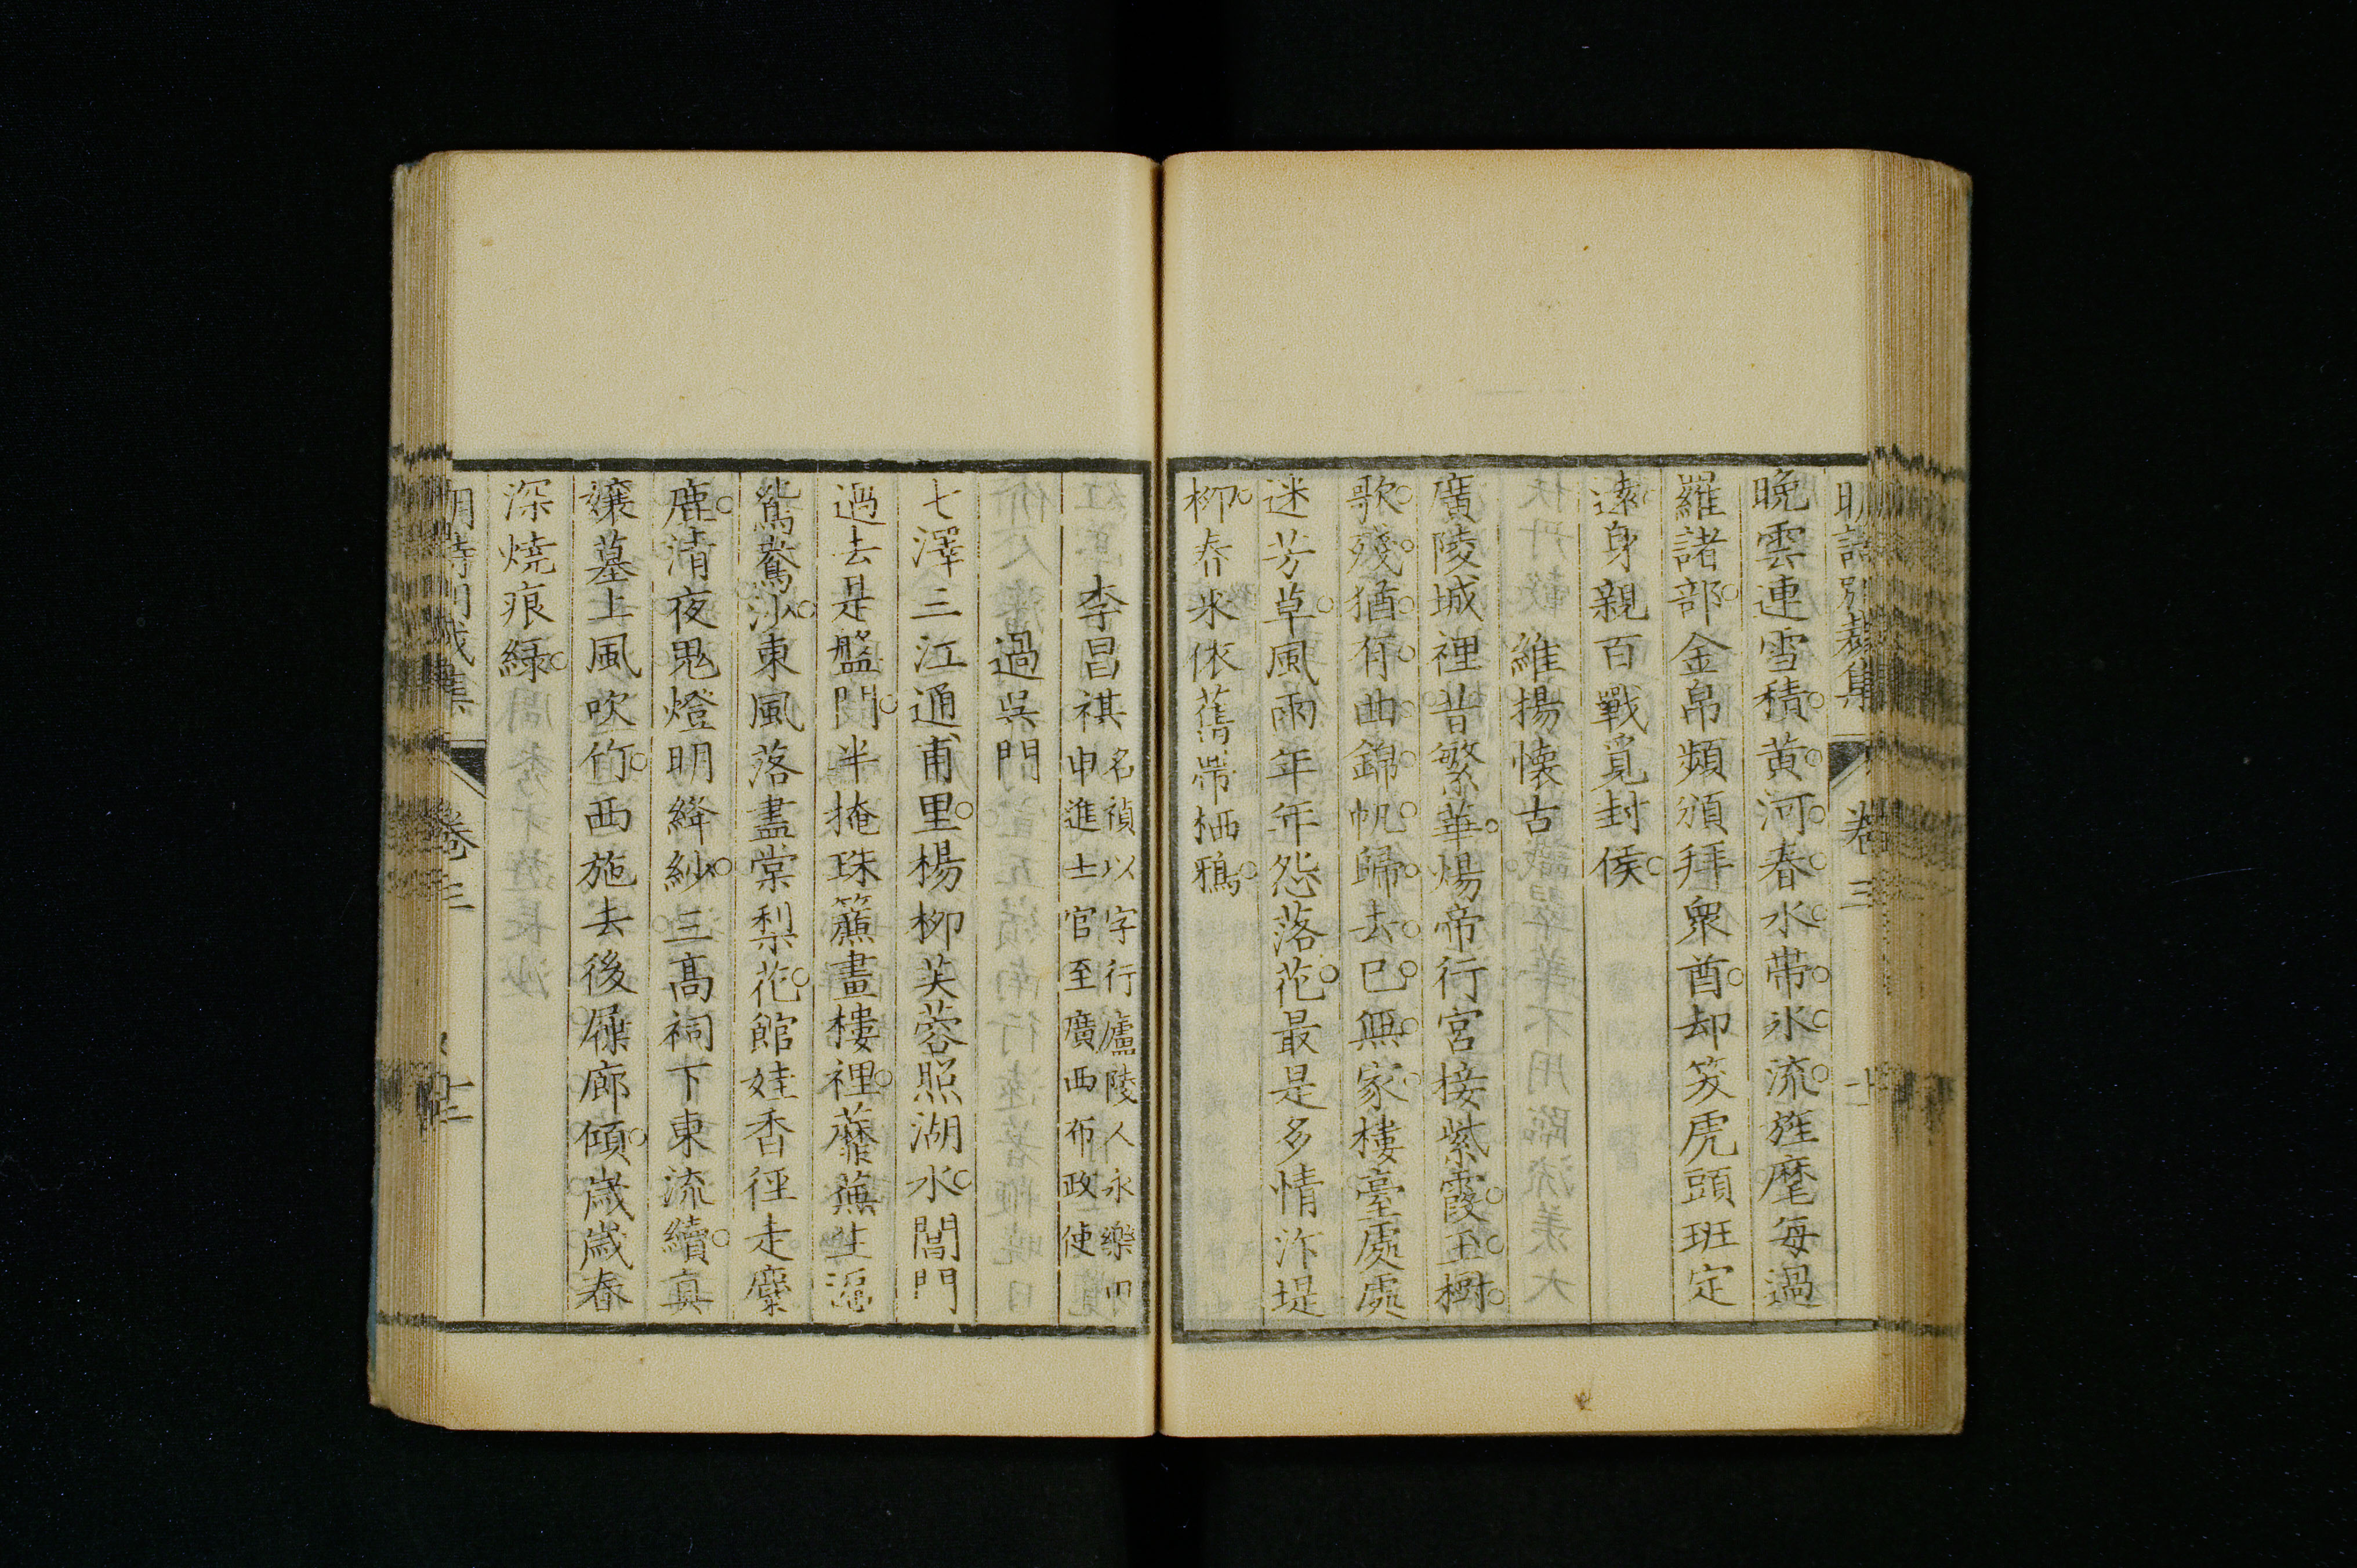 明詩別裁集 卷三
晚雲連雪積黃河春水帶氷流旌麾每過
羅諸部金帛頻頒拜衆酋却笑虎頭班定
遠身親百戰覓封侯
維揚懷古
廣陵城裡昔繁華煬帝行宮接紫霞玉樹
歌殘猶有曲錦帆歸去已無家樓臺處處
迷芳草風雨年年怨落花最是多情汴堤
柳春來依舊帶栖鴉
李昌祺名禎以字行廬陵人永樂甲
申進士官至廣西布政使
過吳門
七澤三江通甫里楊柳芙蓉照湖水閶門
過去是盤門半掩珠簾畫樓裡蘼蕪生遍
鴛鴦沙東風落盡棠梨花館娃香徑走麋
鹿清夜鬼燈明絳紗三高祠下東流續真
孃墓上風吹竹西施去後屧廊傾歲歲春
深燒痕綠
明詩別裁集 卷三